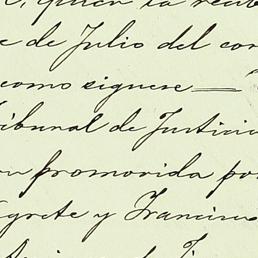 quien la
e de Julio del cor
como siguese —
ribunal de Justicia
promovida po
grete y Francisc